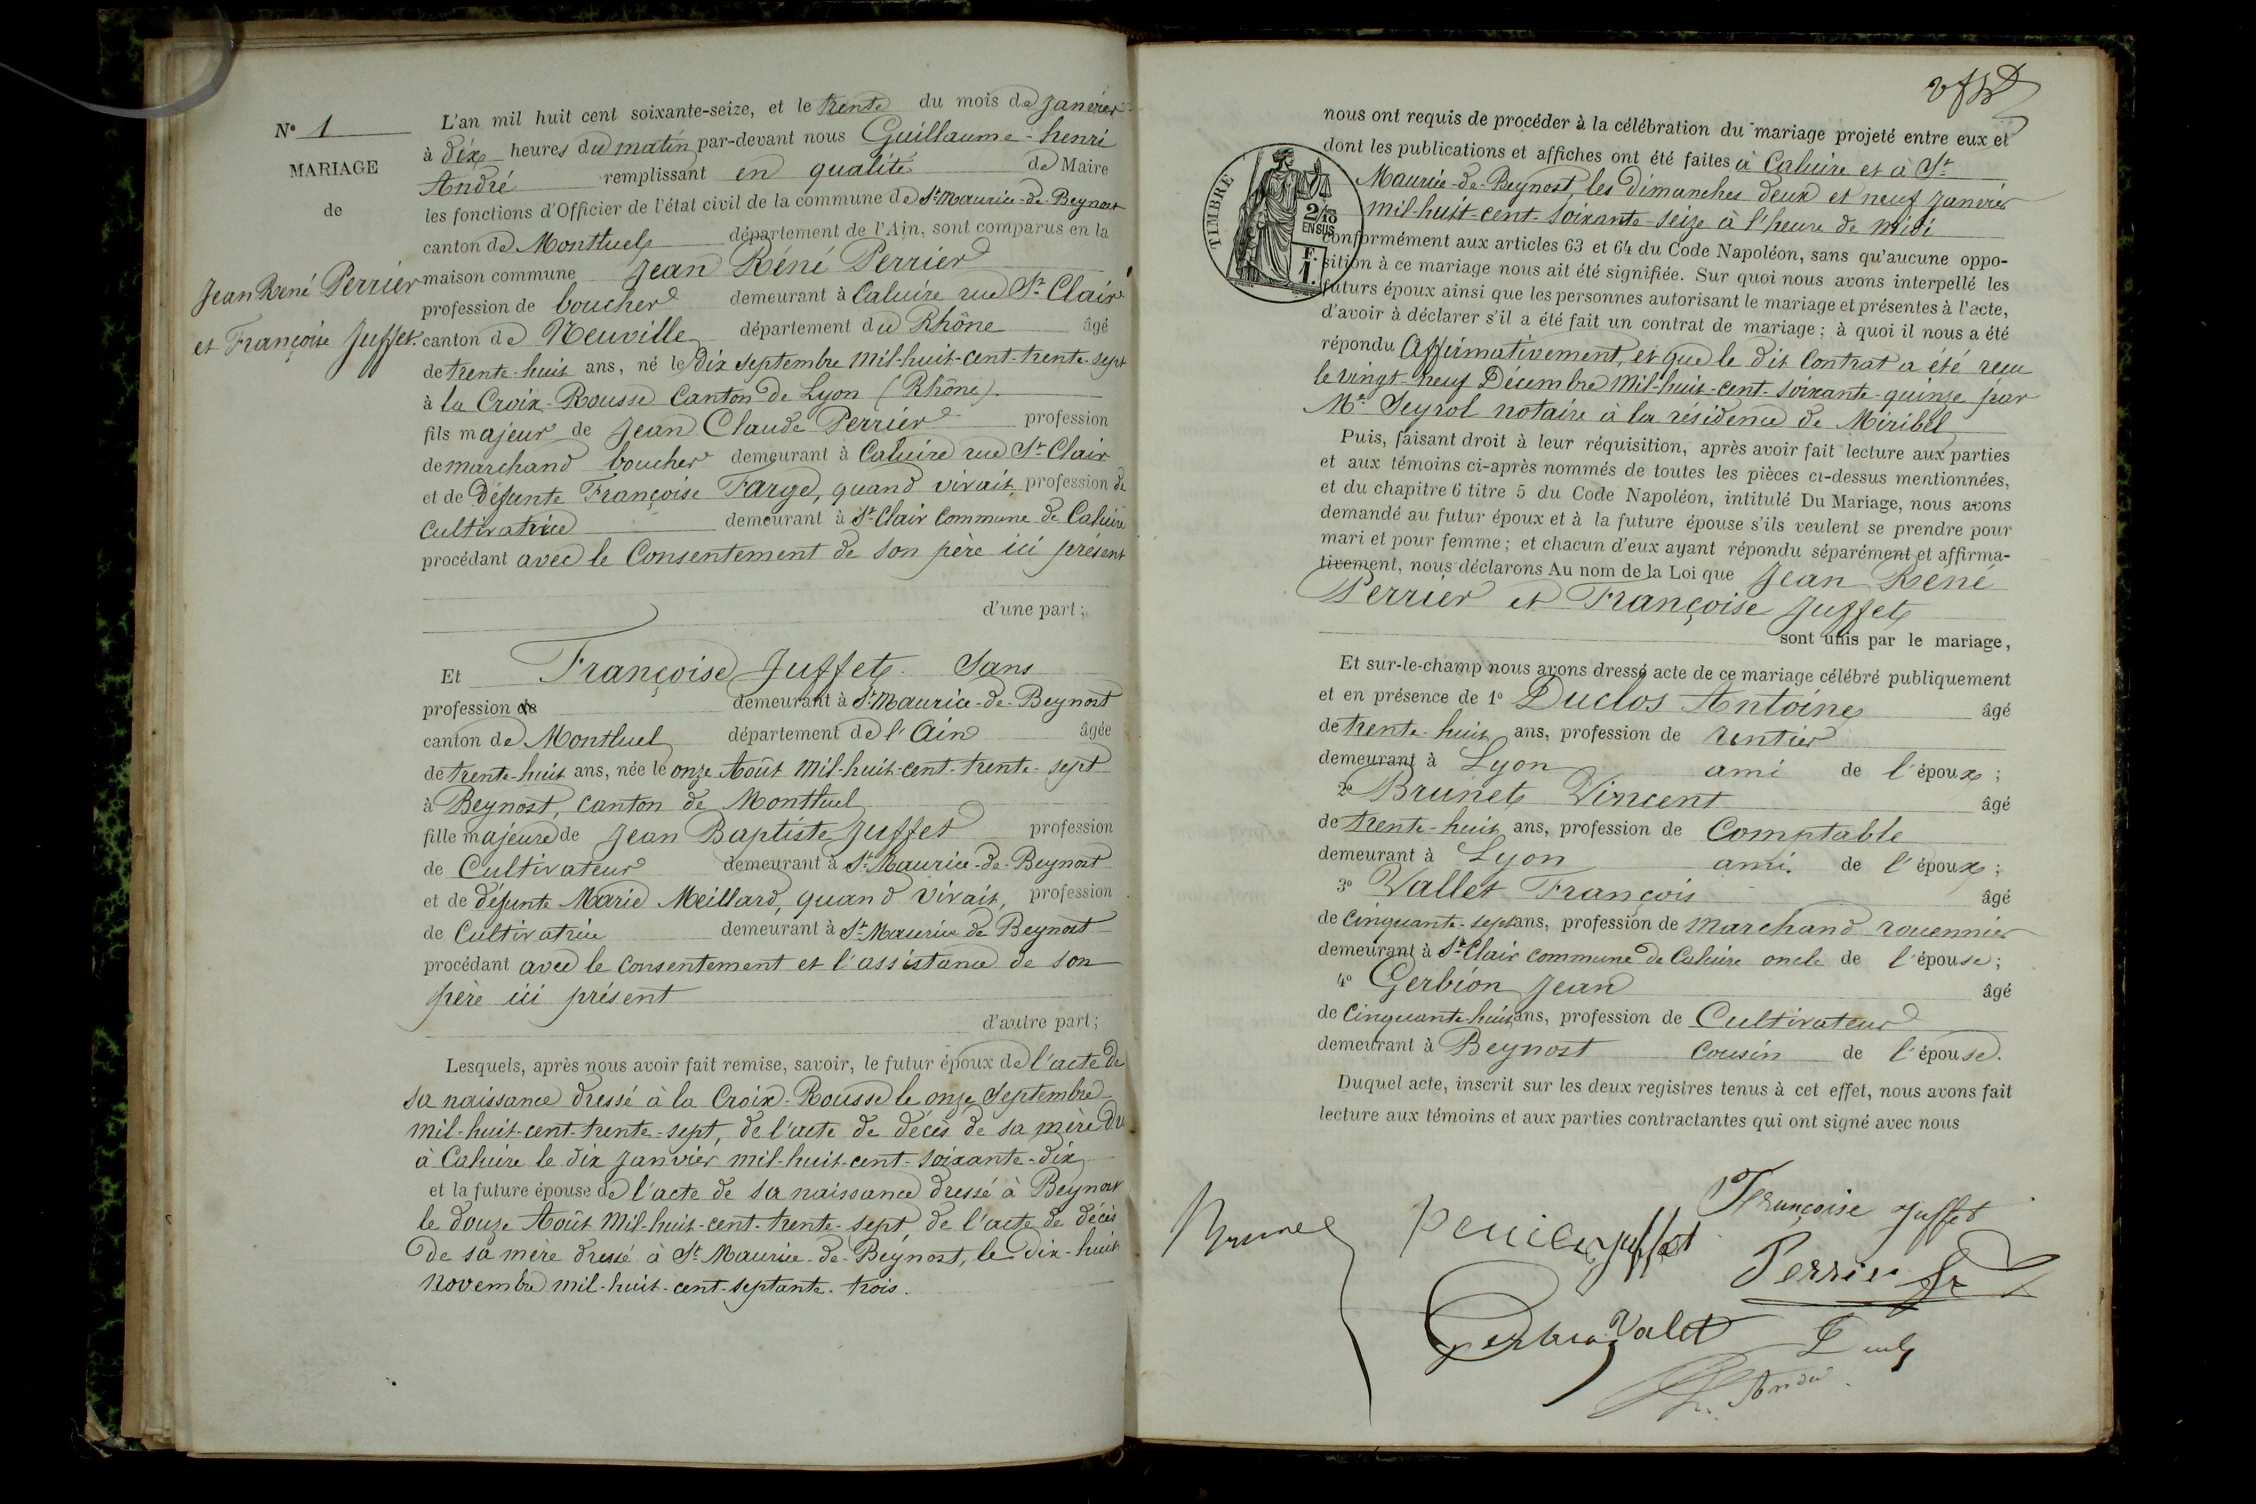 N° 1
MARIAGE
de
Jean René Perrier
et Françoise Juffet.
L'an mil huit cent soixante-seize, et le trente du mois de Janvier
à dix heures du matin par-devant nous Guillaume-henri
André remplissant en qualité de Maire
les fonctions d'Officier de l'état civil de la commune de St Maurice-de-Beynost
canton de Montluel département de l'Ain, sont comparus en la
maison commune Jean Réné Perrier
profession de boucher demeurant à Caluire rue St Clair
canton de Neuville département du Rhône âgé
de trente-huit ans, né le dix septembre mil-huit-cent-trente-sept
à la Croix-Rousse Canton de Lyon (Rhône).
fils majeur de Jean Claude Perrier profession
de marchand boucher demeurant à Caluire rue St Clair
et de défunte Françoise Farge, quand vivait, profession de
Cultivatrice demeurant à St Clair Commune de Caluire
procédant avec le Consentement de son père ici présent
d'une part;
Et Françoise Juffet. Sans
profession de demeurant à St Maurice-de-Beynost
canton de Montluel département de l'Ain âgée
de trente-huit ans, née le onze Août mil-huit-cent-trente-sept
à Beynost, canton de Montluel
fille majeure de Jean Baptiste Juffet profession
de Cultivateur demeurant à St Maurice-de-Beynost
et de défunte Marie Meillard, quand vivait, profession
de Cultivatrice demeurant à St Maurice de Beynost
procédant avec le consentement et l'assistance de son
père ici présent
d'autre part;
Lesquels, après nous avoir fait remise, savoir, le futur époux de l'acte de
sa naissance dressé à la Croix-Rousse le onze Septembre
mil-huit-cent-trente-sept, de l'acte de décès de sa mère du
à Caluire le dix Janvier mil-huit-cent-soixante-dix
et la future épouse de l'acte de sa naissance dressé à Beynost
le douze Août mil-huit-cent-trente-sept, de l'acte de décès
de sa mère dressé à St Maurice-de-Beynost, le dix-huit
novembre mil-huit-cent-septante-trois.
TIMBRE
2/10
EN SUS
F.
1.
nous ont requis de procéder à la célébration du mariage projeté entre eux et
dont les publications et affiches ont été faites à Caluire et à St
Maurice-de-Beynost, les dimanches deux et neuf Janvier
mil-huit-cent-soixante-seize à l'heure de midi
conformément aux articles 63 et 64 du Code Napoléon, sans qu'aucune oppo-
sition à ce mariage nous ait été signifiée. Sur quoi nous avons interpellé les
futurs époux ainsi que les personnes autorisant le mariage et présentes à l'acte,
d'avoir à déclarer s'il a été fait un contrat de mariage; à quoi il nous a été
répondu Affirmativement, et que le dit Contrat a été reçu
le vingt-neuf Décembre mil-huit-cent-soixante-quinze par
Me Seyrol notaire à la résidence de Miribel
Puis, faisant droit à leur réquisition, après avoir fait lecture aux parties
et aux témoins ci-après nommés de toutes les pièces ci-dessus mentionnées,
et du chapitre 6 titre 5 du Code Napoléon, intitulé Du Mariage, nous avons
demandé au futur époux et à la future épouse s'ils veulent se prendre pour
mari et pour femme; et chacun d'eux ayant répondu séparément et affirma-
tivement, nous déclarons Au nom de la Loi que Jean René
Perrier et Françoise Juffet
sont unis par le mariage,
Et sur-le-champ nous avons dressé acte de ce mariage célébré publiquement
et en présence de 1° Duclos Antoine âgé
de trente-huit ans, profession de rentier
demeurant à Lyon ami de l'époux;
2° Brunet Vincent âgé
de trente-huit ans, profession de Comptable
demeurant à Lyon ami de l'époux;
3° Vallet François âgé
de Cinquante-sept ans, profession de Marchand rouennier
demeurant à St Clair commune de Caluire oncle de l'épouse;
4° Gerbion Jean âgé
de cinquante-huit ans, profession de Cultivateur
demeurant à Beynost Cousin de l'épouse.
Duquel acte, inscrit sur les deux registres tenus à cet effet, nous avons fait
lecture aux témoins et aux parties contractantes qui ont signé avec nous
Françoise Juffet
Perrier Juffet
Perrier
Valet
André